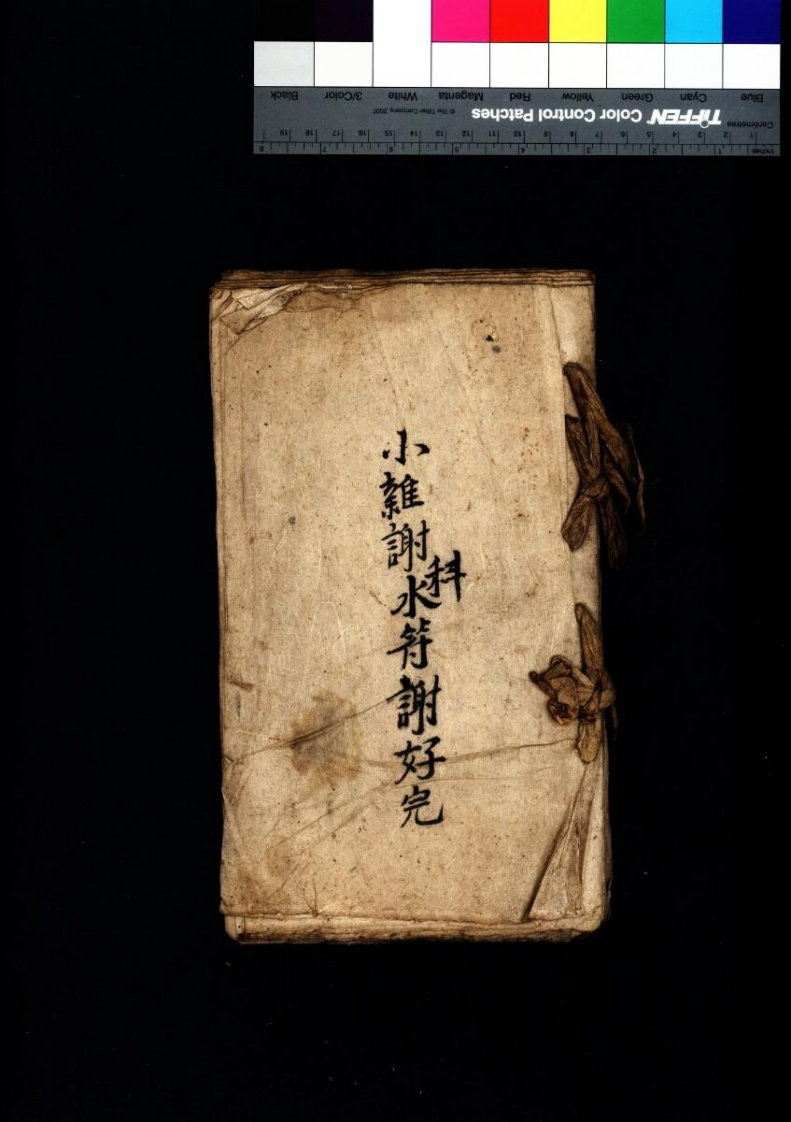 Blue Cyan Green Yellow Red Magenta White 3/Color Black
TIFFEN Color Control Patches © The Tiffen Company, 2007
Centimetres 1 2 3 4 5 6 7 8 9 10 11 12 13 14 15 16 17 18 19
Inches 1 2 3 4 5 6 7 8
小雜謝水符謝好完
科